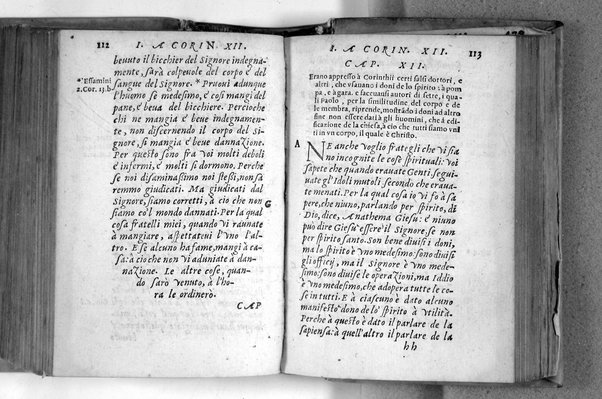 112 I. A CORIN. XII.
beuuto il bicchier del Signore indegna-
mente, sarà colpeuole del corpo e del
*Essamini sangue del Signore. * Pruoui adunque
2. Cor. 13. b l'huomo se medesimo, e cosi mangi del
pane, e beua del bicchiere. Percioche
chi ne mangia e beue indegnamen-
te, non discernendo il corpo del Si-
gnore, si mangia e beue dannazione.
Per questo sono fra voi molti deboli
e infermi, e molti si dormono. Perche
se noi disaminassimo noi stessi, non sa
remmo giudicati. Ma giudicati dal
Signore, siamo corretti, à cio che non
siamo co'l mondo dannati. Per la qual
cosa fratelli miei, quando vi raunate
à mangiare, aspettateui l'vno l'al-
tro. E se alcuno ha fame, mangi à ca-
sa: à cioche non vi aduniate à dan-
nazione. Le altre cose, quan-
do sarò venuto, à l'ho-
ra le ordinerò.
CAP
I. A CORIN. XII. 113
CAP. XII.
Erano appresso à Corinthii certi falsi dottori, e
altri, che vsauano i doni de lo spirito: à pom
pa, e à gara. e faceuansi autori di sette, i qua
li Paolo, per la similitudine del corpo e de
le membra, riprende, mostrādo i doni ad altro
fine non esser dati à gli huomini, che à edi
ficazione de la chiesa, à cio che tutti siamo vni
ti in vn corpo, il quale è Christo.
A NE anche voglio frategli che vi sia
no incognite le cose spirituali: voi
sapete che quando erauate Genti, segui-
uate gl'Idoli mutoli secondo che erauà-
te menati. Per la qual cosa io vi fo à sa
pere, che niuno, parlando per spirito, di
G Dio, dice, Anathema Giesu: e niuno
può dire Giesu essere il Signore, se non
per spirito santo. Son bene diuisi i doni,
ma lo spirito è vno medesimo: sono diuisi
gli officij, ma il Signore è vno mede-
simo: sono diuise le operazioni, ma Iddio
è vno medesimo, che adopera tutte le co-
se in tutti. E à ciascuno è dato alcuno
manifesto dono de lo spirito à vtilità.
Perche à questo è dato il parlare de la
sapiensa: à quell'altro il parlare de la
hh